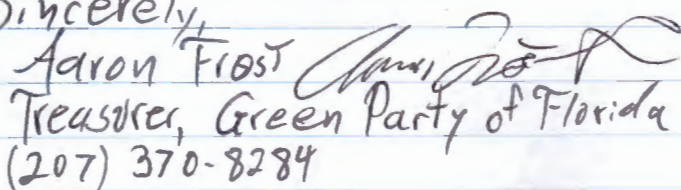 Sincerely,
Aaron Frost
Treasurer, Green Party of Florida
(207) 370-8284